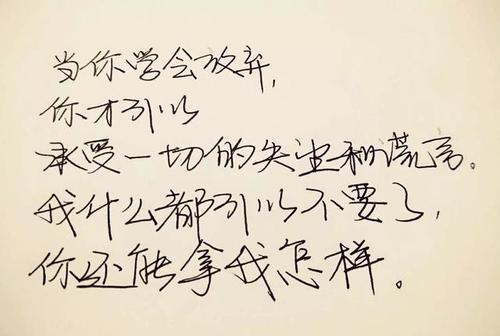 当你学会放弃,
你才可以
承受一切的失望和谎言。
我什么都可以不要了,
你还能拿我怎样。